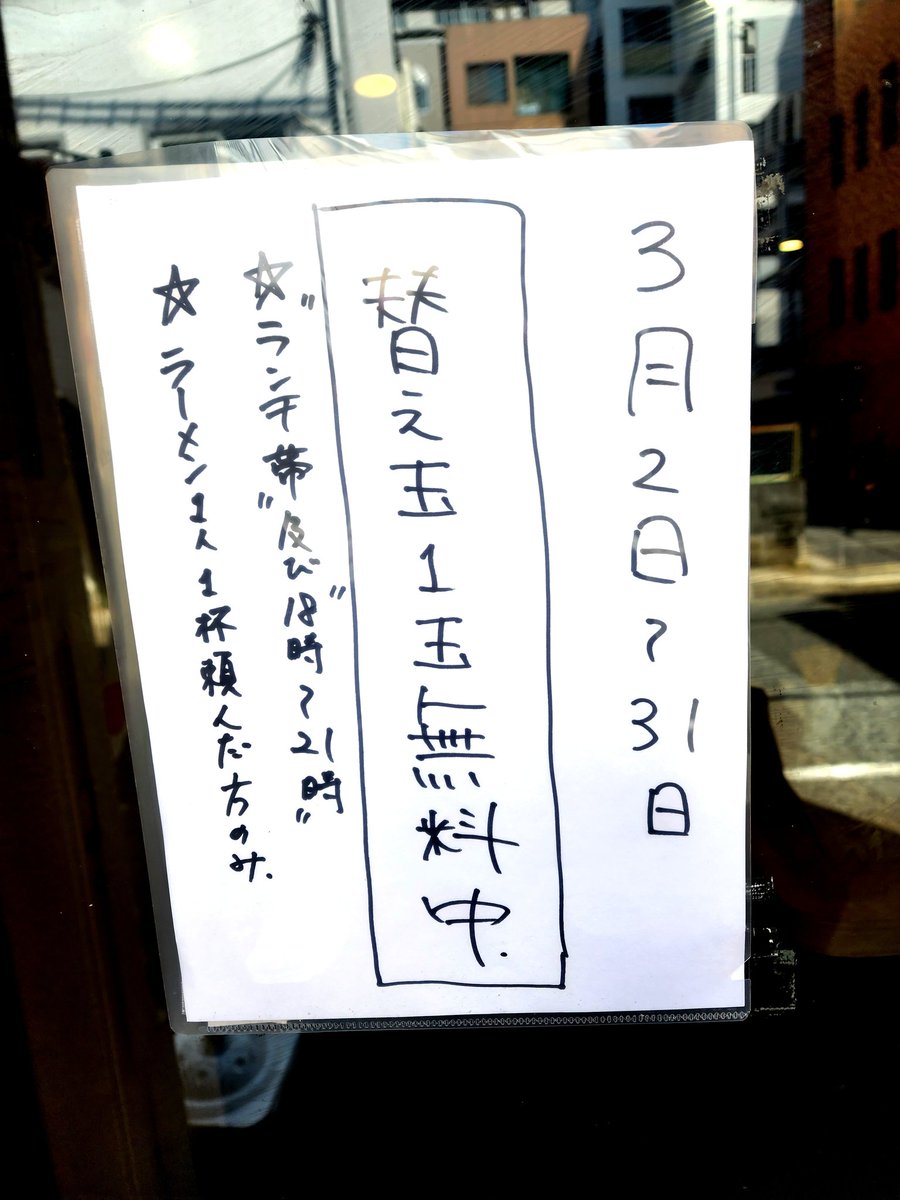 3月2日~31日
替え玉1玉無料中.
☆"ランチ帯"及び"18時~21時"
☆ラーメン1人1杯頼んだ方のみ.